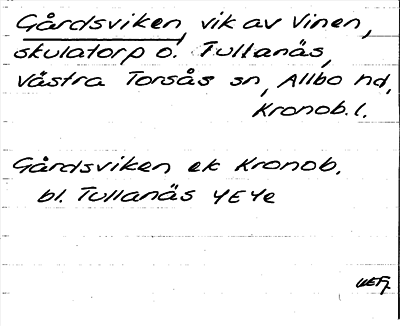 Gårdsviken, vik av Vinen,
skulatorp o. Tullanäs,
västra Torsås sn, Allbo hd,
Kronob. l.
Gårdsviken ek Kronob.
bl. Tullanäs 4E4e